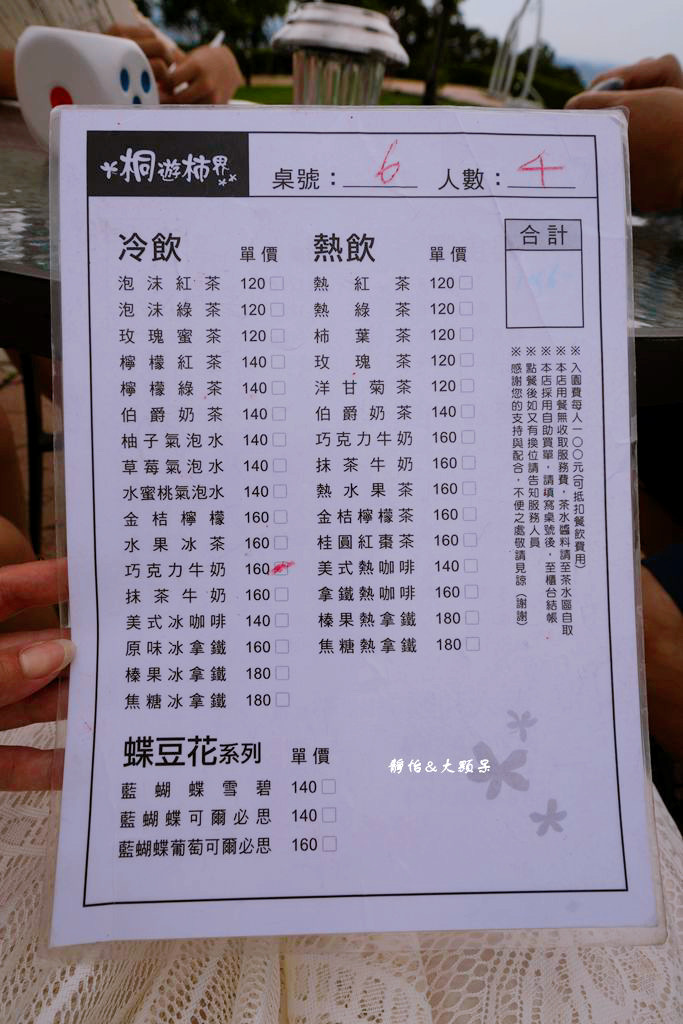 桐遊柿界
桌號：6 人數：4
冷飲 單價
泡沫紅茶 120
泡沫綠茶 120
玫瑰蜜茶 120
檸檬紅茶 140
檸檬綠茶 140
伯爵奶茶 140
柚子氣泡水 140
草莓氣泡水 140
水蜜桃氣泡水 140
金桔檸檬 160
水果冰茶 160
巧克力牛奶 160
抹茶牛奶 160
美式冰咖啡 140
原味冰拿鐵 160
榛果冰拿鐵 180
焦糖冰拿鐵 180
熱飲 單價
熱紅茶 120
熱綠茶 120
柿葉茶 120
玫瑰茶 120
洋甘菊茶 120
伯爵奶茶 140
巧克力牛奶 160
抹茶牛奶 160
熱水果茶 160
金桔檸檬茶 160
桂圓紅棗茶 160
美式熱咖啡 140
拿鐵熱咖啡 160
榛果熱拿鐵 180
焦糖熱拿鐵 180
合計
※入園費每人一〇〇元(可抵扣餐飲費用)
※本店用餐無收取服務費，茶水醬料請至茶水區自取
※本店採用自助買單，請填寫桌號後，至櫃台結帳
※點餐後如又有換位請告知服務人員
※感謝您的支持與配合，不便之處敬請見諒（謝謝）
蝶豆花系列 單價
藍蝴蝶雪碧 140
藍蝴蝶可爾必思 140
藍蝴蝶葡萄可爾必思 160
靜怡&大顆呆